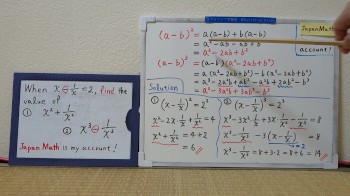 When x ⊖ 1/x = 2, find the
value of
① x² + 1/x²
② x³ ⊖ 1/x³
Japan Math is my account!
Japan Math
account!
(a-b)² = a(a-b) + b(a-b)
= a² - ab - ab + b²
= a² - 2ab + b²
(a-b)³ = (a-b)(a² - 2ab + b²)
= a(a² - 2ab + b²) - b(a² - 2ab + b²)
= a³ - 2a²b + ab² - a²b + 2ab² - b³
= a³ - 3a²b + 3ab² - b³
Solution
① (x - 1/x)² = 2²
x² - 2x · 1/x + 1/x² = 4
x² + 1/x² = 4 + 2
= 6
② (x - 1/x)³ = 2³
x³ - 3x² · 1/x + 3x · 1/x² - 1/x³ = 8
x³ - 1/x³ - 3(x - 1/x) = 8
= 2
x³ - 1/x³ = 8 + 3 · 2 = 8 + 6 = 14